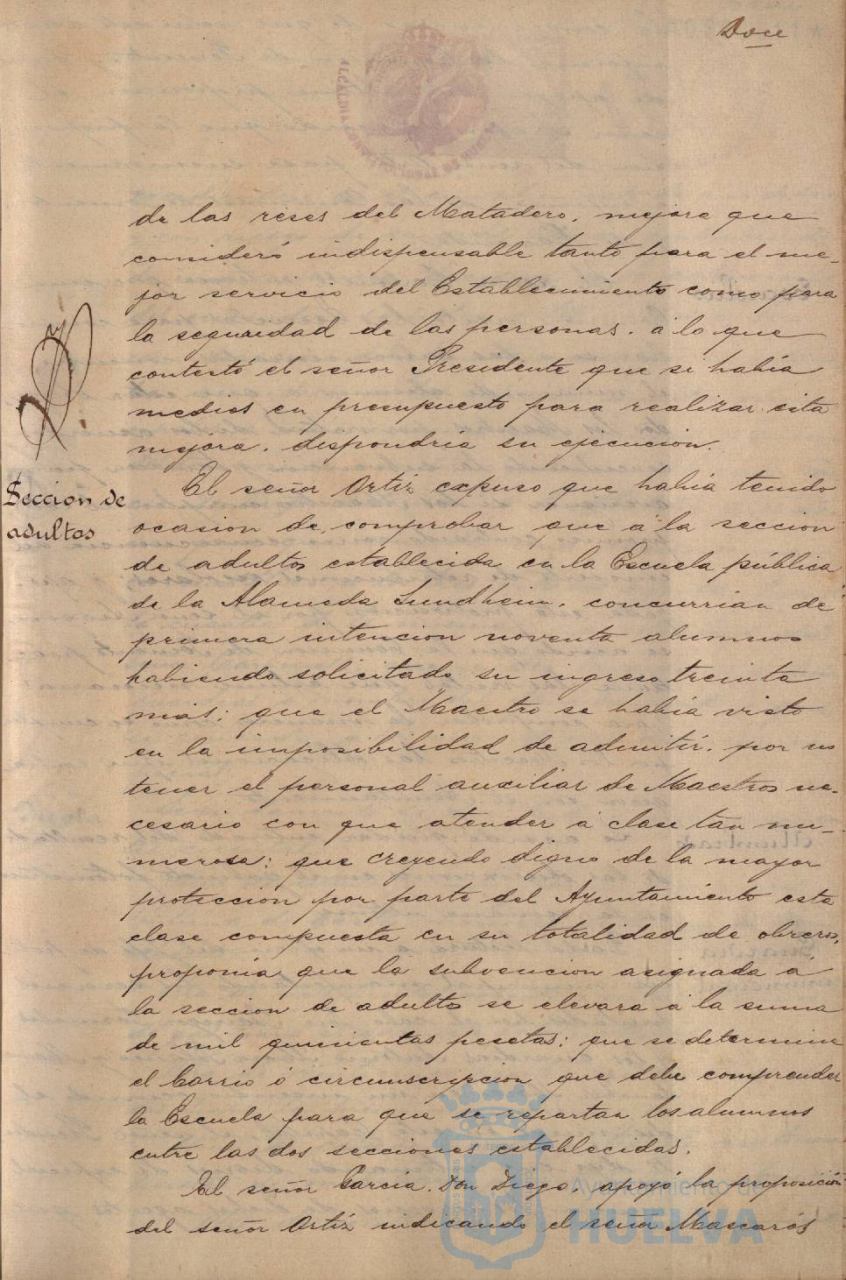 Doce
de las reses del Matadero. mejora que
consideró indispensable tanto para el me-
jor servicio del Establecimiento como para
la seguridad de las personas. á lo que
contestó el señor Presidente que si había
medios en presupuesto para realizar esta
mejora. dispondría su ejecucion.
Seccion de
adultos
El señor Ortiz expuso que había tenido
ocasion de comprobar que á la seccion
de adultos establecida en la Escuela pública
de la Alameda Sundheim. concurrian de
primera intencion noventa alumnos
habiendo solicitado su ingreso treinta
más; que el Maestro se había visto
en la imposibilidad de admitir. por no
tener el personal auxiliar de Maestros ne-
cesario con que atender á clase tan nu-
merosa: que creyendo digno de la mayor
proteccion por parte del Ayuntamiento esta
clase compuesta en su totalidad de obreros,
proponía que la subvencion asignada á
la seccion de adultos se elevara á la suma
de mil quinientas pesetas: que se determine
el barrio ó circunscripcion que debe comprender
la Escuela para que se repartan los alumnos
entre las dos secciones establecidas.
El señor García. Don Diego. apoyó la proposición
del señor Ortiz indicando el señor Mascarós
Ayuntamiento de
HUELVA